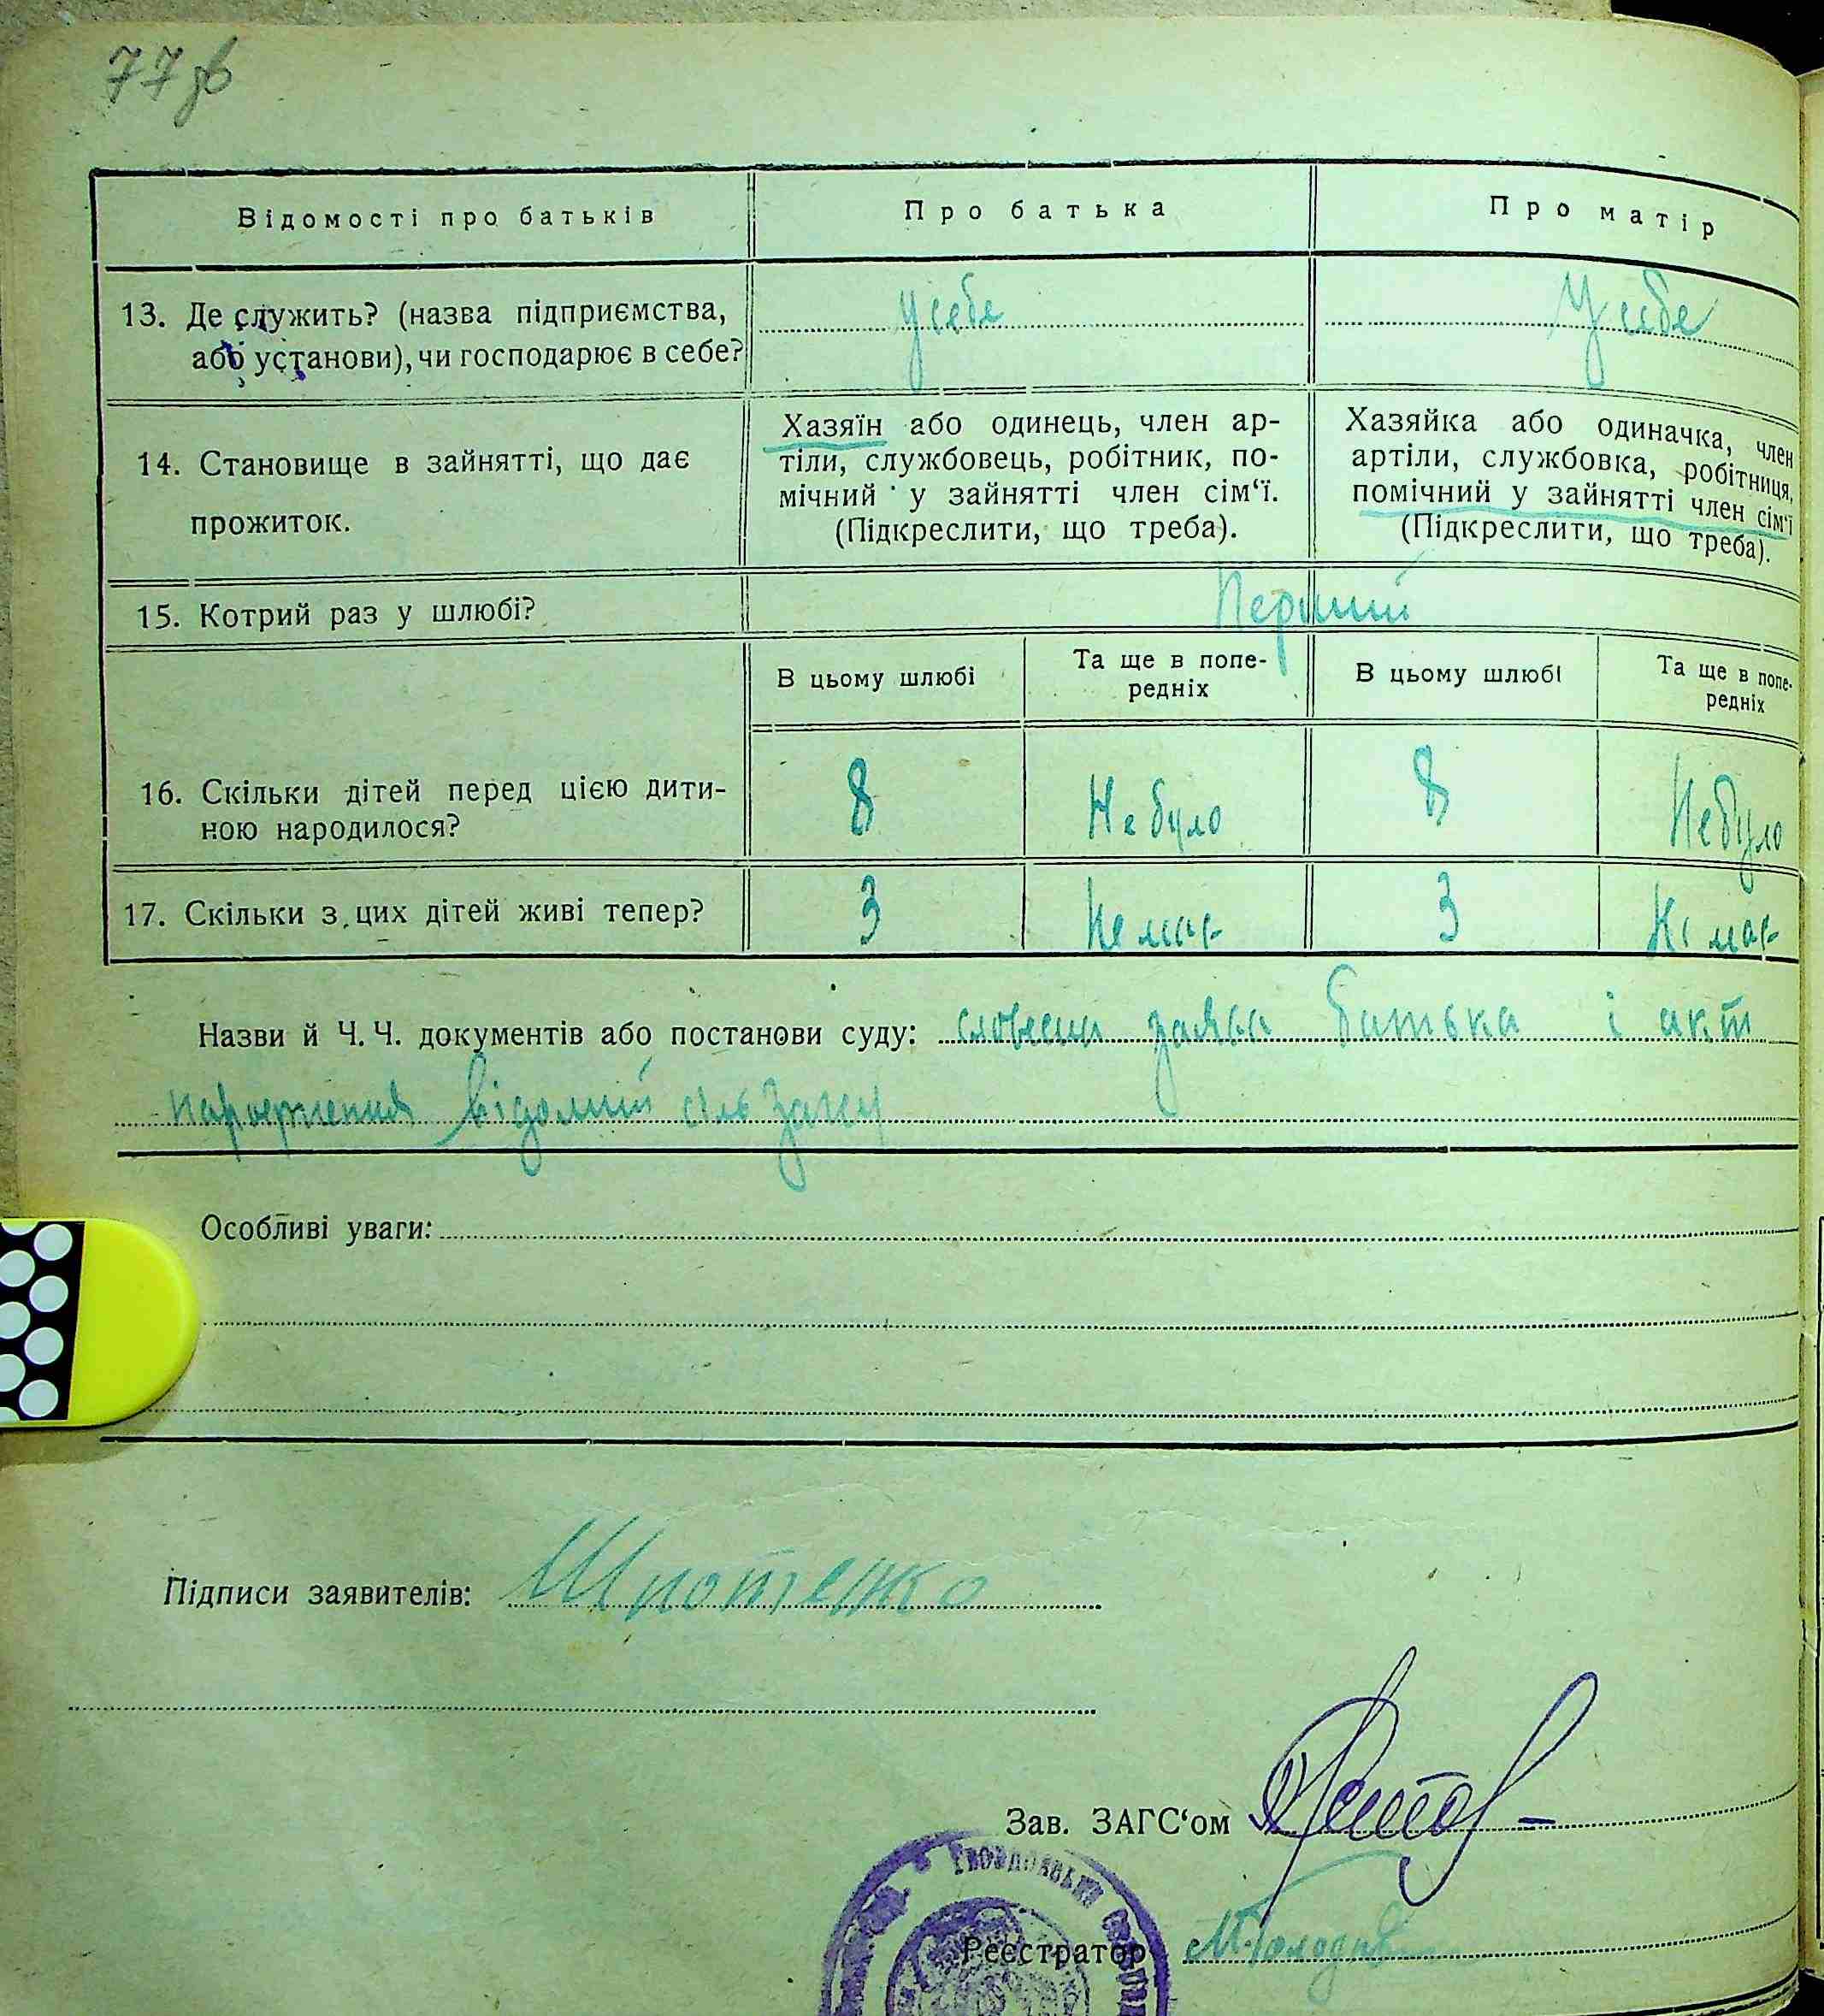 77 зв
Відомості про батьків
Про батька
Про матір
13. Де служить? (назва підприємства,
або установи), чи господарює в себе?
У себе
У себе
14. Становище в зайнятті, що дає
прожиток.
Хазяїн або одинець, член ар-
тіли, службовець, робітник, по-
мічний у зайнятті член сім‘ї.
(Підкреслити, що треба).
Хазяйка або одиначка, член
артіли, службовка, робітниця,
помічний у зайнятті член сім‘ї
(Підкреслити, що треба).
15. Котрий раз у шлюбі?
Перший
В цьому шлюбі
Та ще в попе-
редніх
В цьому шлюбі
Та ще в попе-
редніх
16. Скільки дітей перед цією дити-
ною народилося?
8
Не було
8
Не було
17. Скільки з цих дітей живі тепер?
3
Немає
3
Немає
Назви й Ч. Ч. документів або постанови суду: словесна заява батька і акт
народження відомий сільЗагсу
Особливі уваги:
Підписи заявителів: Шпотенко
Зав. ЗАГС‘ом
Реєстратор